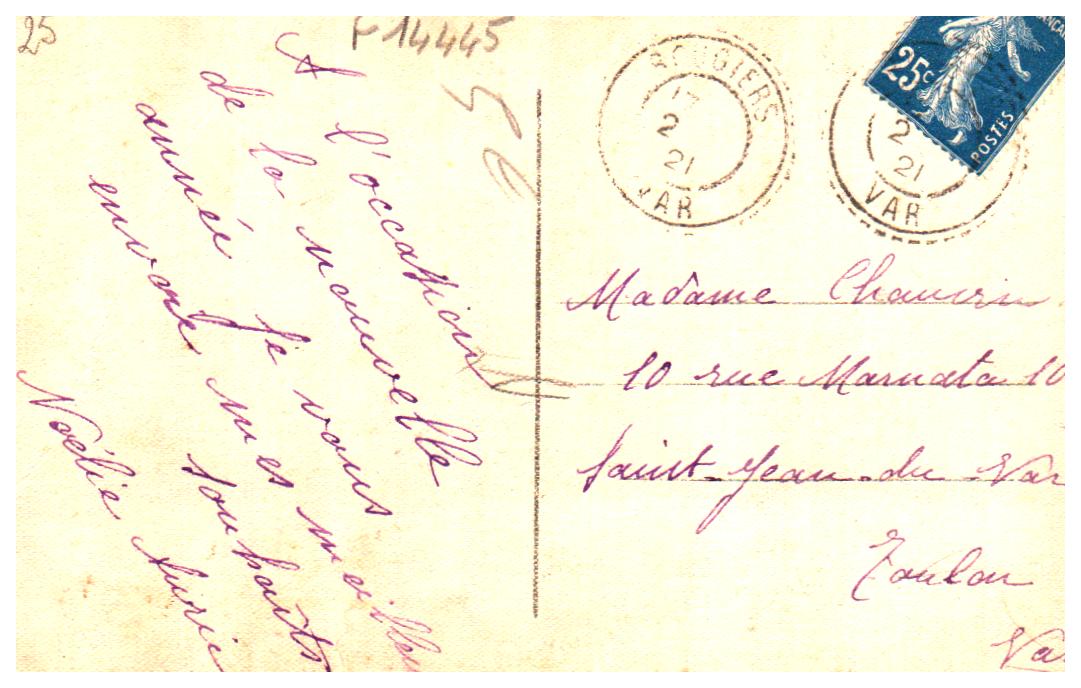 25
14445
5
A l'occassion
de la nouvelle
année je vous
envoie mes meilleu
souhaits
Noélie
ROUGIERS
17
2
21
VAR
2
21
VAR
25c
POSTES
Madame
10 rue Marnata 10
Saint-Jean-du Var
Toulon
Va